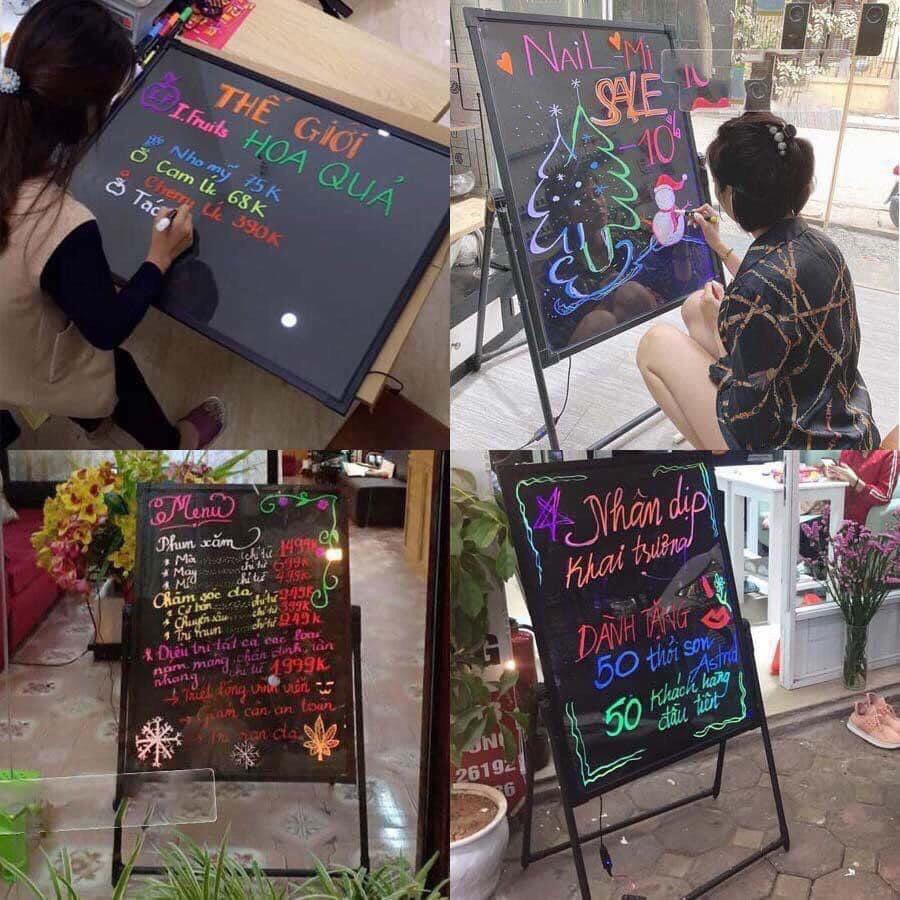 I.Fruits
THẾ GIỚI
HOA QUẢ
Nho mỹ 75K
Cam Úc 68K
Cherry Úc 390K
Táo
NAIL-Mi
SALE
-10%
Menu
Phun xăm
* Mày chỉ từ 699K
* Mí chỉ từ 499K
Chăm sóc da
* Cơ bản chỉ từ 249K
* Chuyên sâu chỉ từ 399K
* Trị mụn chỉ từ 249K
* Điều trị tất cả các loại
nám mảng, chân đinh, tàn
nhang chỉ từ 1999K
→ Triệt lông vĩnh viễn
→ Giảm cân an toàn
Nhân dịp
Khai trương
DÀNH TẶNG
50 thỏi son
Astrid
50 Khách hàng
đầu tiên
26192